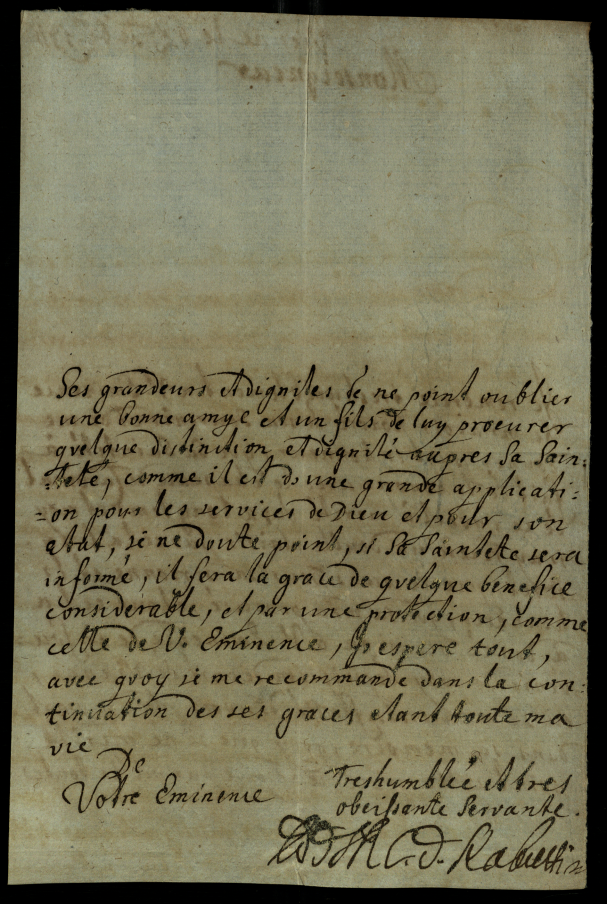 Ses grandeurs et dignites de ne point oublier
une bonne amye et un fils de luy procurer
quelque distinction et dignité aupres Sa Sain:
:teté, comme il est d'une grande applicati:
:on pour les services de Dieu et pour son
etat, je ne doute point, si Sa Saintete sera
informé, il fera la grace de quelque benefice
considerable, et par une protection, comme
celle de V. Eminence, j'espere tout,
avec quoy je me recommande dans la con:
tinuation des ses graces etant toute ma
vie
De
Votre Eminence
Treshumblé et tres
obeissante Servante.
C. d. Rabutin